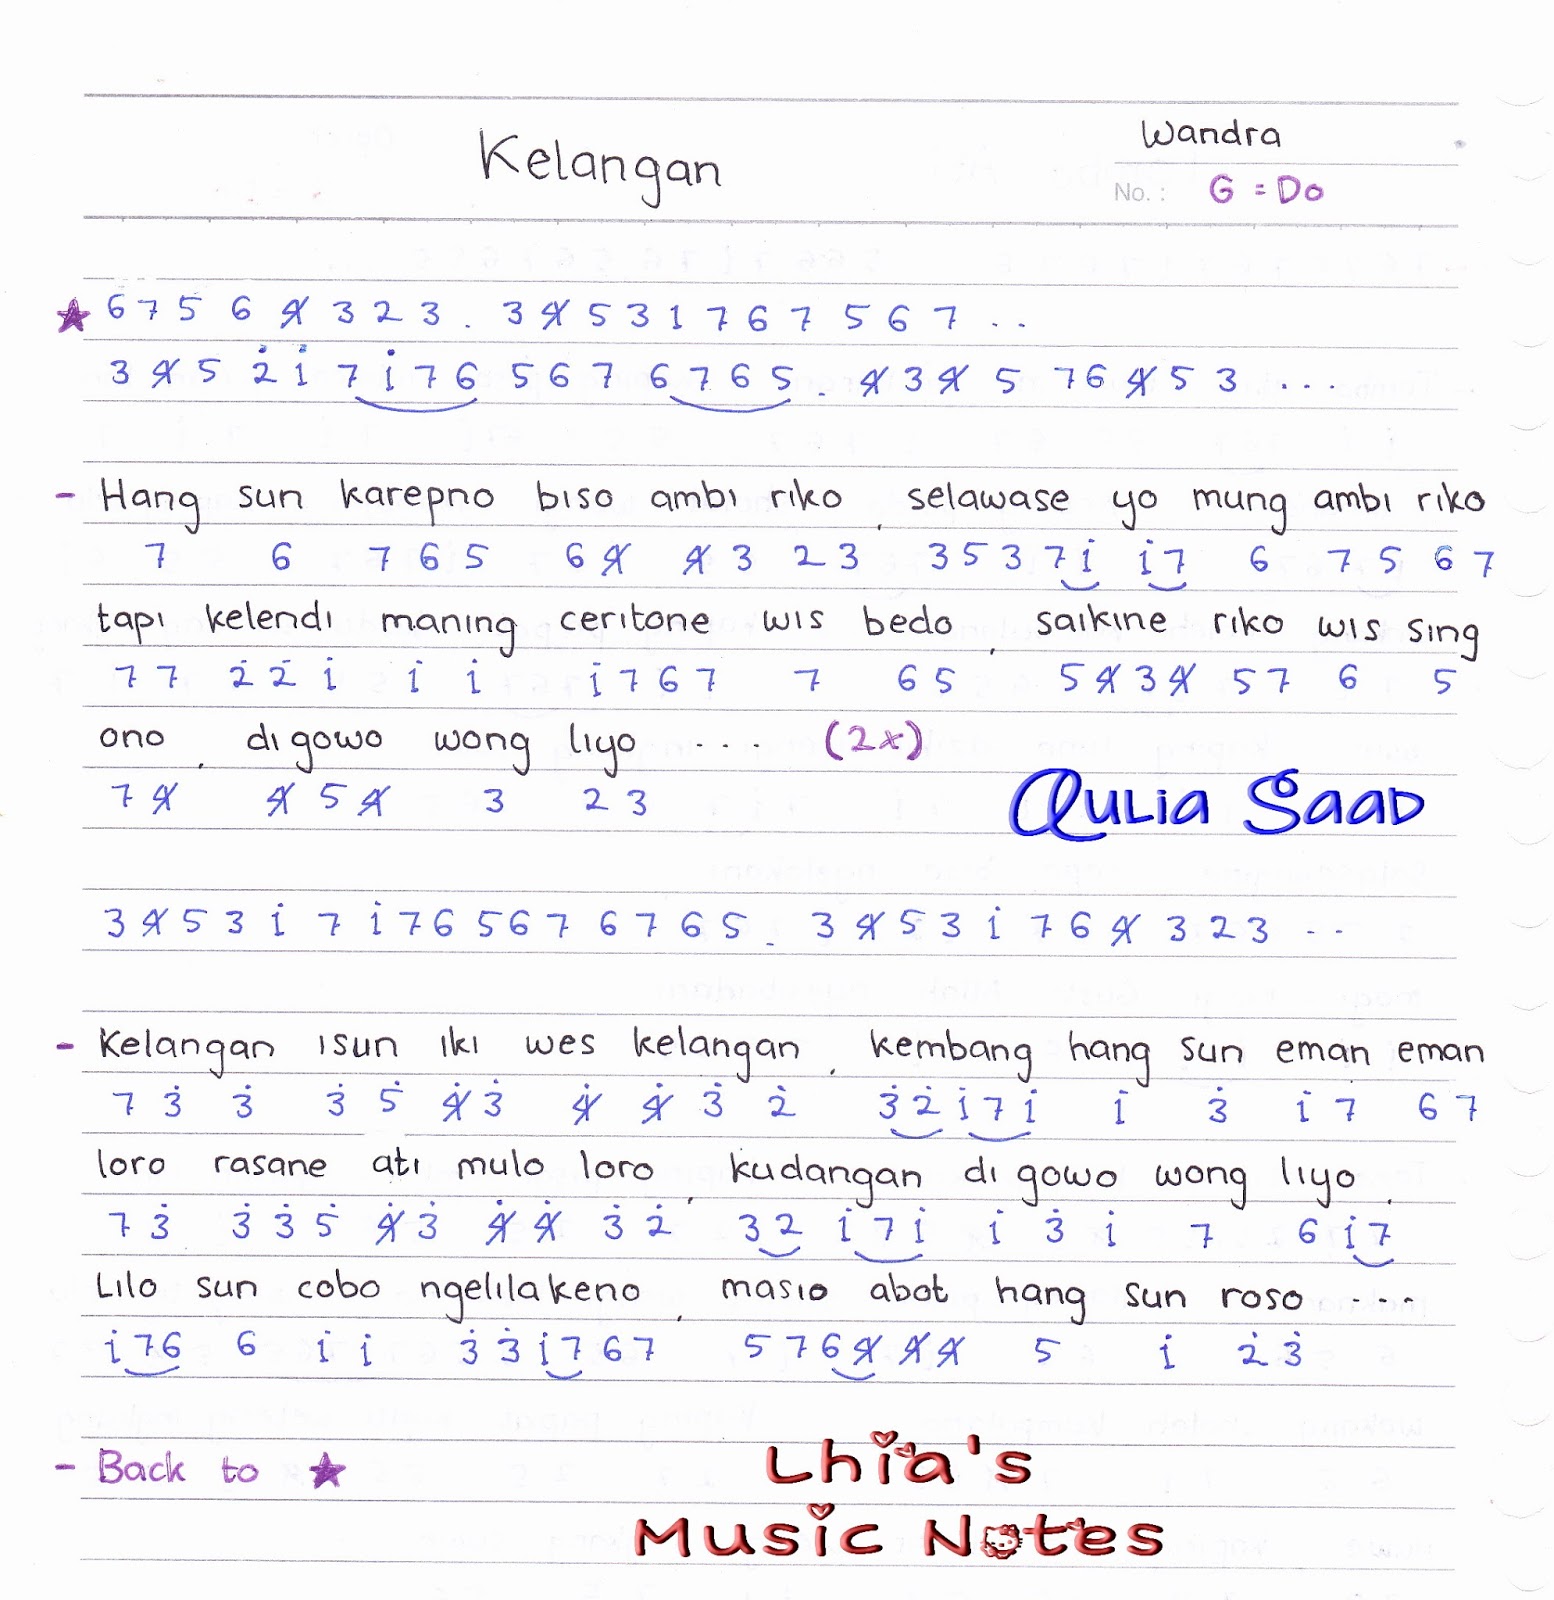 Kelangan
Wandra
No. : G = Do
★ 6 7 5 6 4̸ 3 2 3 . 3 4̸ 5 3 1 7 6 7 5 6 7 . .
3 4̸ 5 2̇ 1̇ 7 1̇ 7 6 5 6 7 6 7 6 5 . 4̸ 3 4̸ 5 7 6 4̸ 5 3 . . .
- Hang sun karepno biso ambi riko , selawase yo mung ambi riko
7 6 7 6 5 6 4̸ 4̸ 3 2 3 3 5 3 7 1̇ 1̇ 7 6 7 5 6 7
tapi kelendi maning ceritone wis bedo , saikine riko wis sing
7 7 2̇ 2̇ 1̇ 1̇ 1̇ 1̇ 7 6 7 7 6 5 5 4̸ 3 4̸ 5 7 6 5
ono , di gowo wong liyo .... (2x)
7 4̸ 4̸ 5 4̸ 3 2 3
Qulia Saad
3 4̸ 5 3 1̇ 7 1̇ 7 6 5 6 7 6 7 6 5 . 3 4̸ 5 3 1̇ 7 6 4̸ 3 2 3 - - -
- Kelangan isun iki wes kelangan , kembang hang sun eman eman
7 3̇ 3̇ 3̇ 5̇ 4̸̇ 3̇ 4̸̇ 4̸̇ 3̇ 2̇ 3̇ 2̇ 1̇ 7 1̇ 1̇ 3̇ 1̇ 7 6 7
loro rasane ati mulo loro , kudangan di gowo wong liyo ,
7 3̇ 3̇ 3̇ 5̇ 4̸̇ 3̇ 4̸̇ 4̸̇ 3̇ 2̇ 3̇ 2̇ 1̇ 7 1̇ 1̇ 3̇ 1̇ 7 6 1̇ 7
Lilo sun cobo ngelilakeno , masio abot hang sun roso ----
1̇ 7 6 6 1̇ 1̇ 3̇ 3̇ 1̇ 7 6 7 5 7 6 4̸ 4̸ 4̸ 5 1̇ 2̇ 3̇
- Back to ★
Lhia's
Music Notes